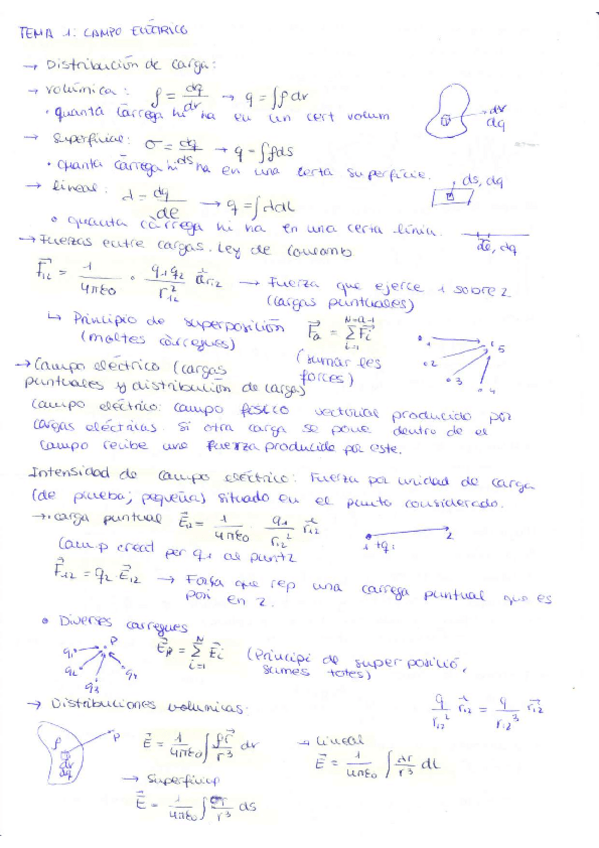 TEMA 1: CAMPO ELÉCTRICO
→ Distribución de carga:
→ volúmica: ρ = dq/dv → q = ∫ρdv
• quanta càrrega hi ha en un cert volum
dv
dq
→ Superficial: σ = dq/ds → q = ∫ρds
• quanta càrrega hi ha en una certa superfície.
ds, dq
→ lineal: λ = dq/de → q = ∫λdl
• quanta càrrega hi ha en una certa línia.
de, dq
→ Fuerzas entre cargas. Ley de Coulomb
F⃗12 = 1/4πε0 · q1q2/r12² a⃗r12 → Fuerza que ejerce 1 sobre 2
(cargas puntuales)
↳ Principio de superposición F⃗a = Σ F⃗i
(moltes càrregues) (sumar les
forces)
1
2
3
4
5
→ Campo eléctrico (cargas
puntuales y distribución de carga)
Campo eléctrico: campo físico vectorial producido por
cargas eléctricas. Si otra carga se pone dentro de el
campo recibe una fuerza producida por este.
Intensidad de campo eléctrico: Fuerza por unidad de carga
(de prueba; pequeña) situado en el punto considerado.
→ carga puntual E⃗12 = 1/4πε0 · q1/r12² r⃗12
1 +q1 2
Camp creat per q1 al punt 2
F⃗12 = q2 · E⃗12 → Força que rep una carrega puntual que es
posi en 2.
• Diverses carregues
q1 q2 q3 q4 P
E⃗p = Σ E⃗i (Principi de superposició,
i=1 N sumes totes)
→ Distribuciones volumicas:
q/r12² r⃗12 = q/r12³ r⃗12
ρ P
E⃗ = 1/4πε0 ∫ ρr⃗/r³ dv
→ Lineal
E⃗ = 1/4πε0 ∫ λr/r³ dl
→ Superficial
E⃗ = 1/4πε0 ∫ σr/r³ ds